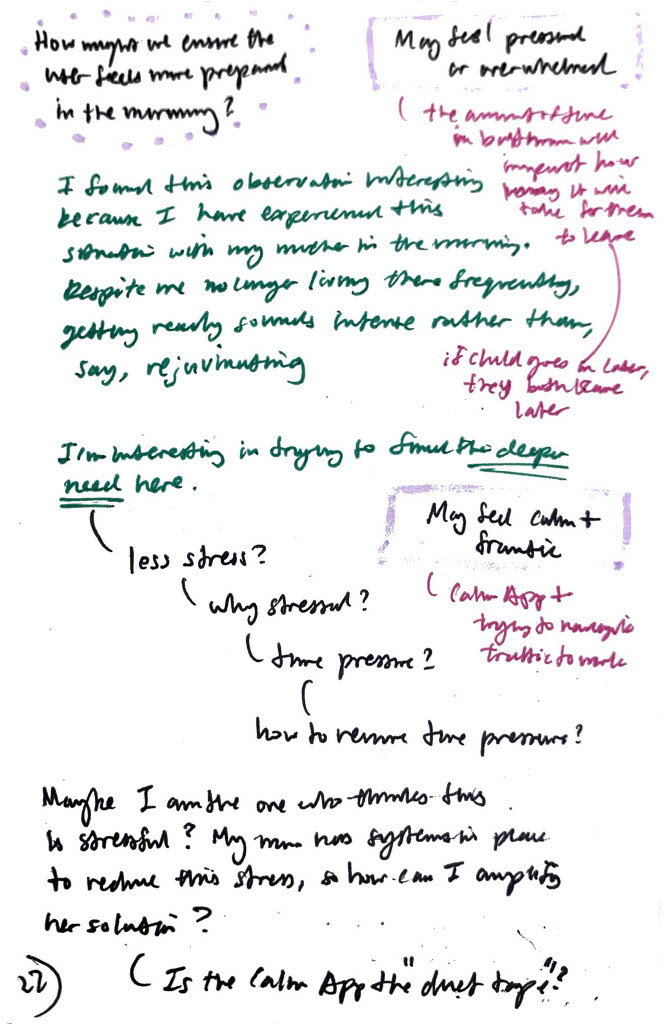 How might we ensure the
user feels more prepared
in the morning?
May feel pressured
or overwhelmed
the amount of time
in bathroom will
impact how
long it will
take for them
to leave
if child goes in later,
they both leave
later
I found this observation interesting
because I have experienced this
situation with my mother in the morning.
Despite me no longer living there frequently,
getting ready sounds intense rather than,
say, rejuvinating
I'm interesting in trying to find the deeper
need here.
less stress?
why stressful?
time pressure?
how to remove time pressure?
May feel calm +
frantic
Calm App +
trying to navigate
traffic to work
Maybe I am the one who thinks this
is stressful? My mom has systems in place
to reduce this stress, so how can I amplify
her solution?
Is the Calm App the "duct tape"?
22